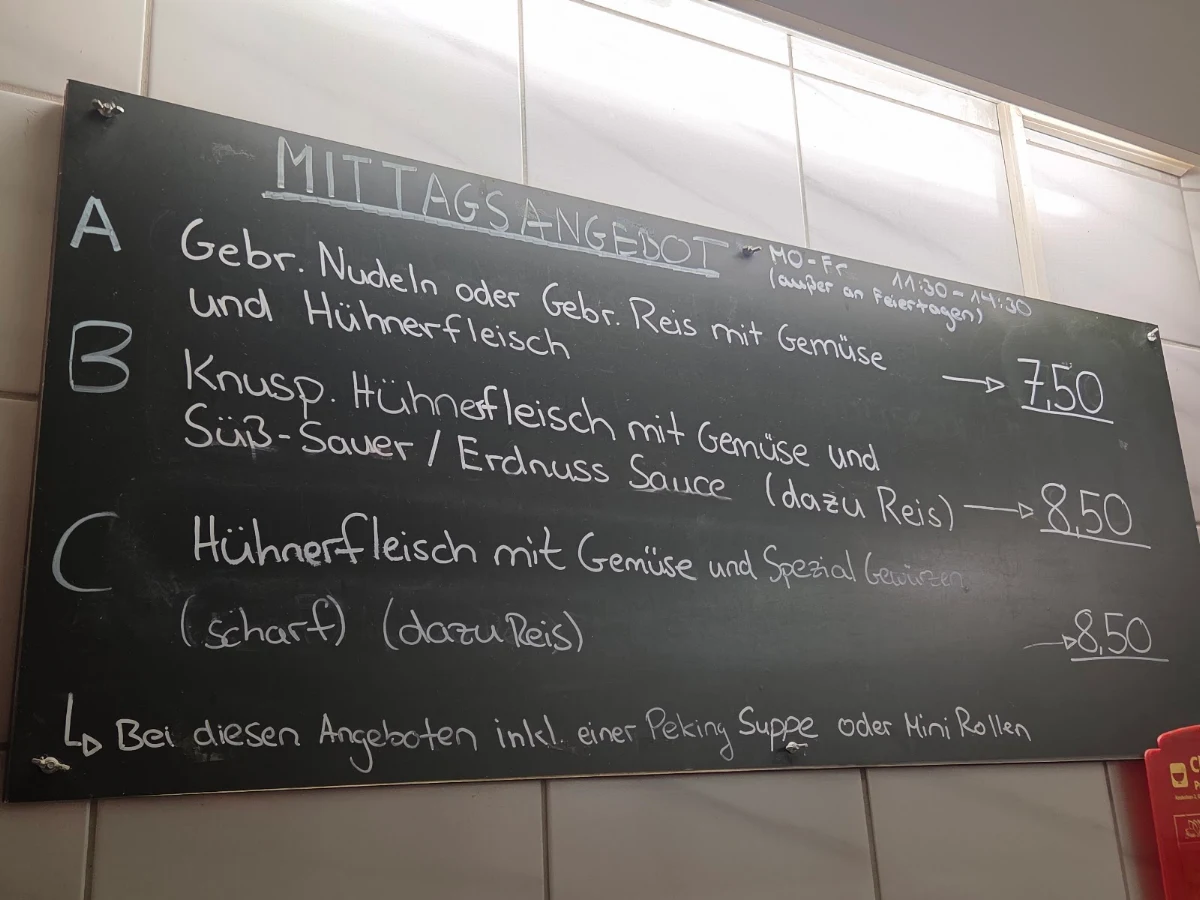 MITTAGSANGEBOT
MO-Fr 11:30-14:30
(außer an Feiertagen)
A Gebr. Nudeln oder Gebr. Reis mit Gemüse
und Hühnerfleisch → 7,50
B Knusp. Hühnerfleisch mit Gemüse und
Süß-Sauer / Erdnuss Sauce (dazu Reis) → 8,50
C Hühnerfleisch mit Gemüse und Spezial Gewürzen
(scharf) (dazu Reis) → 8,50
↳ Bei diesen Angeboten inkl. einer Peking Suppe oder Mini Rollen